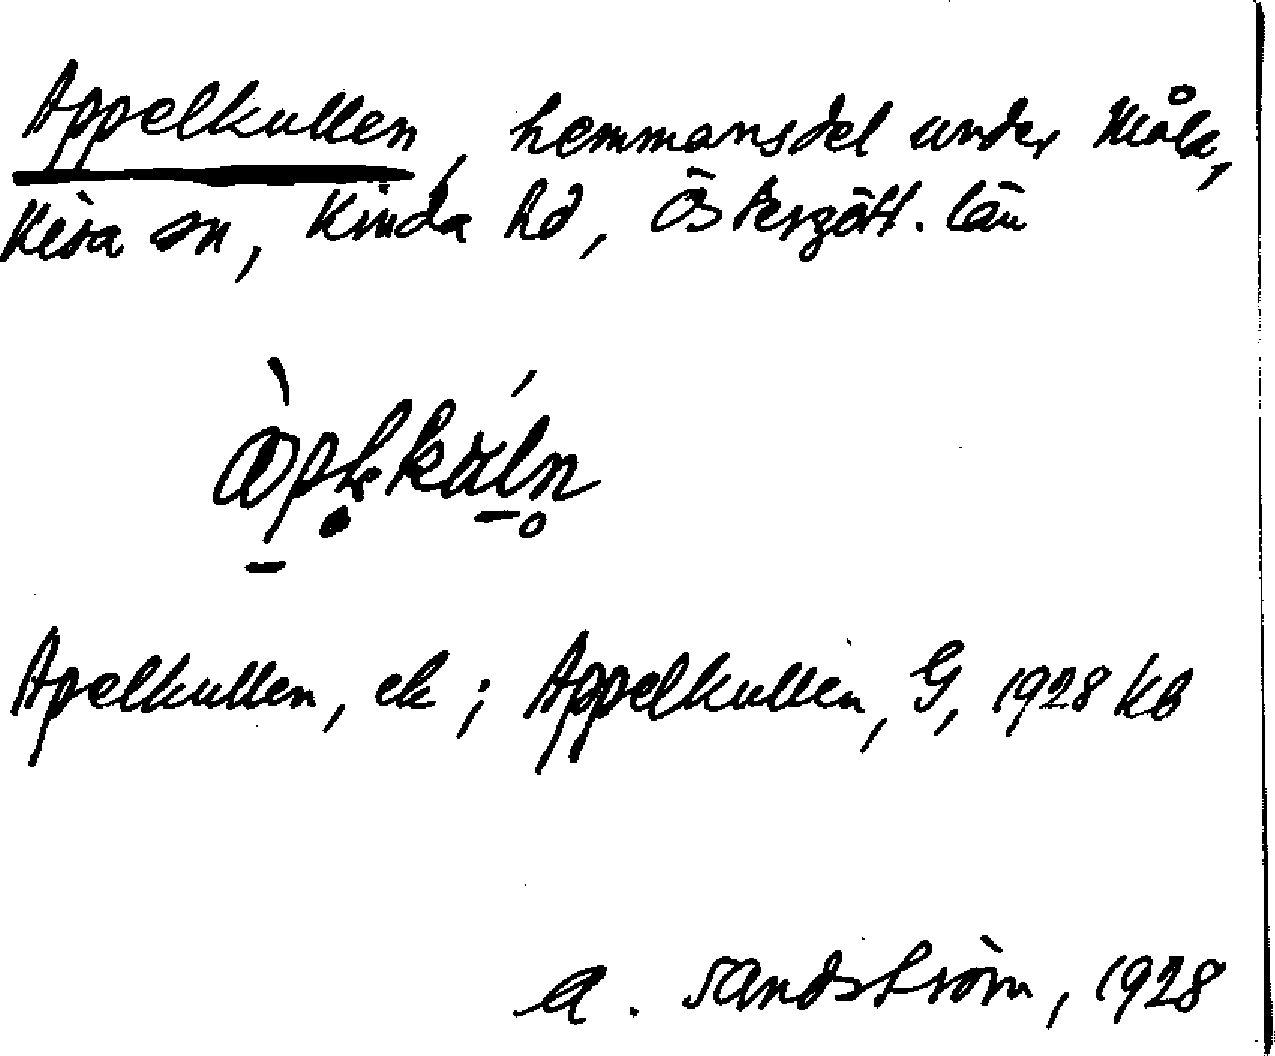 Appelkullen, hemmansdel under Måla,
Kisa sn, Kinda hd, Östergötl. län
Apelkullen, ek; Appelkullen, G, 1928 kb
A. Sandström, 1928